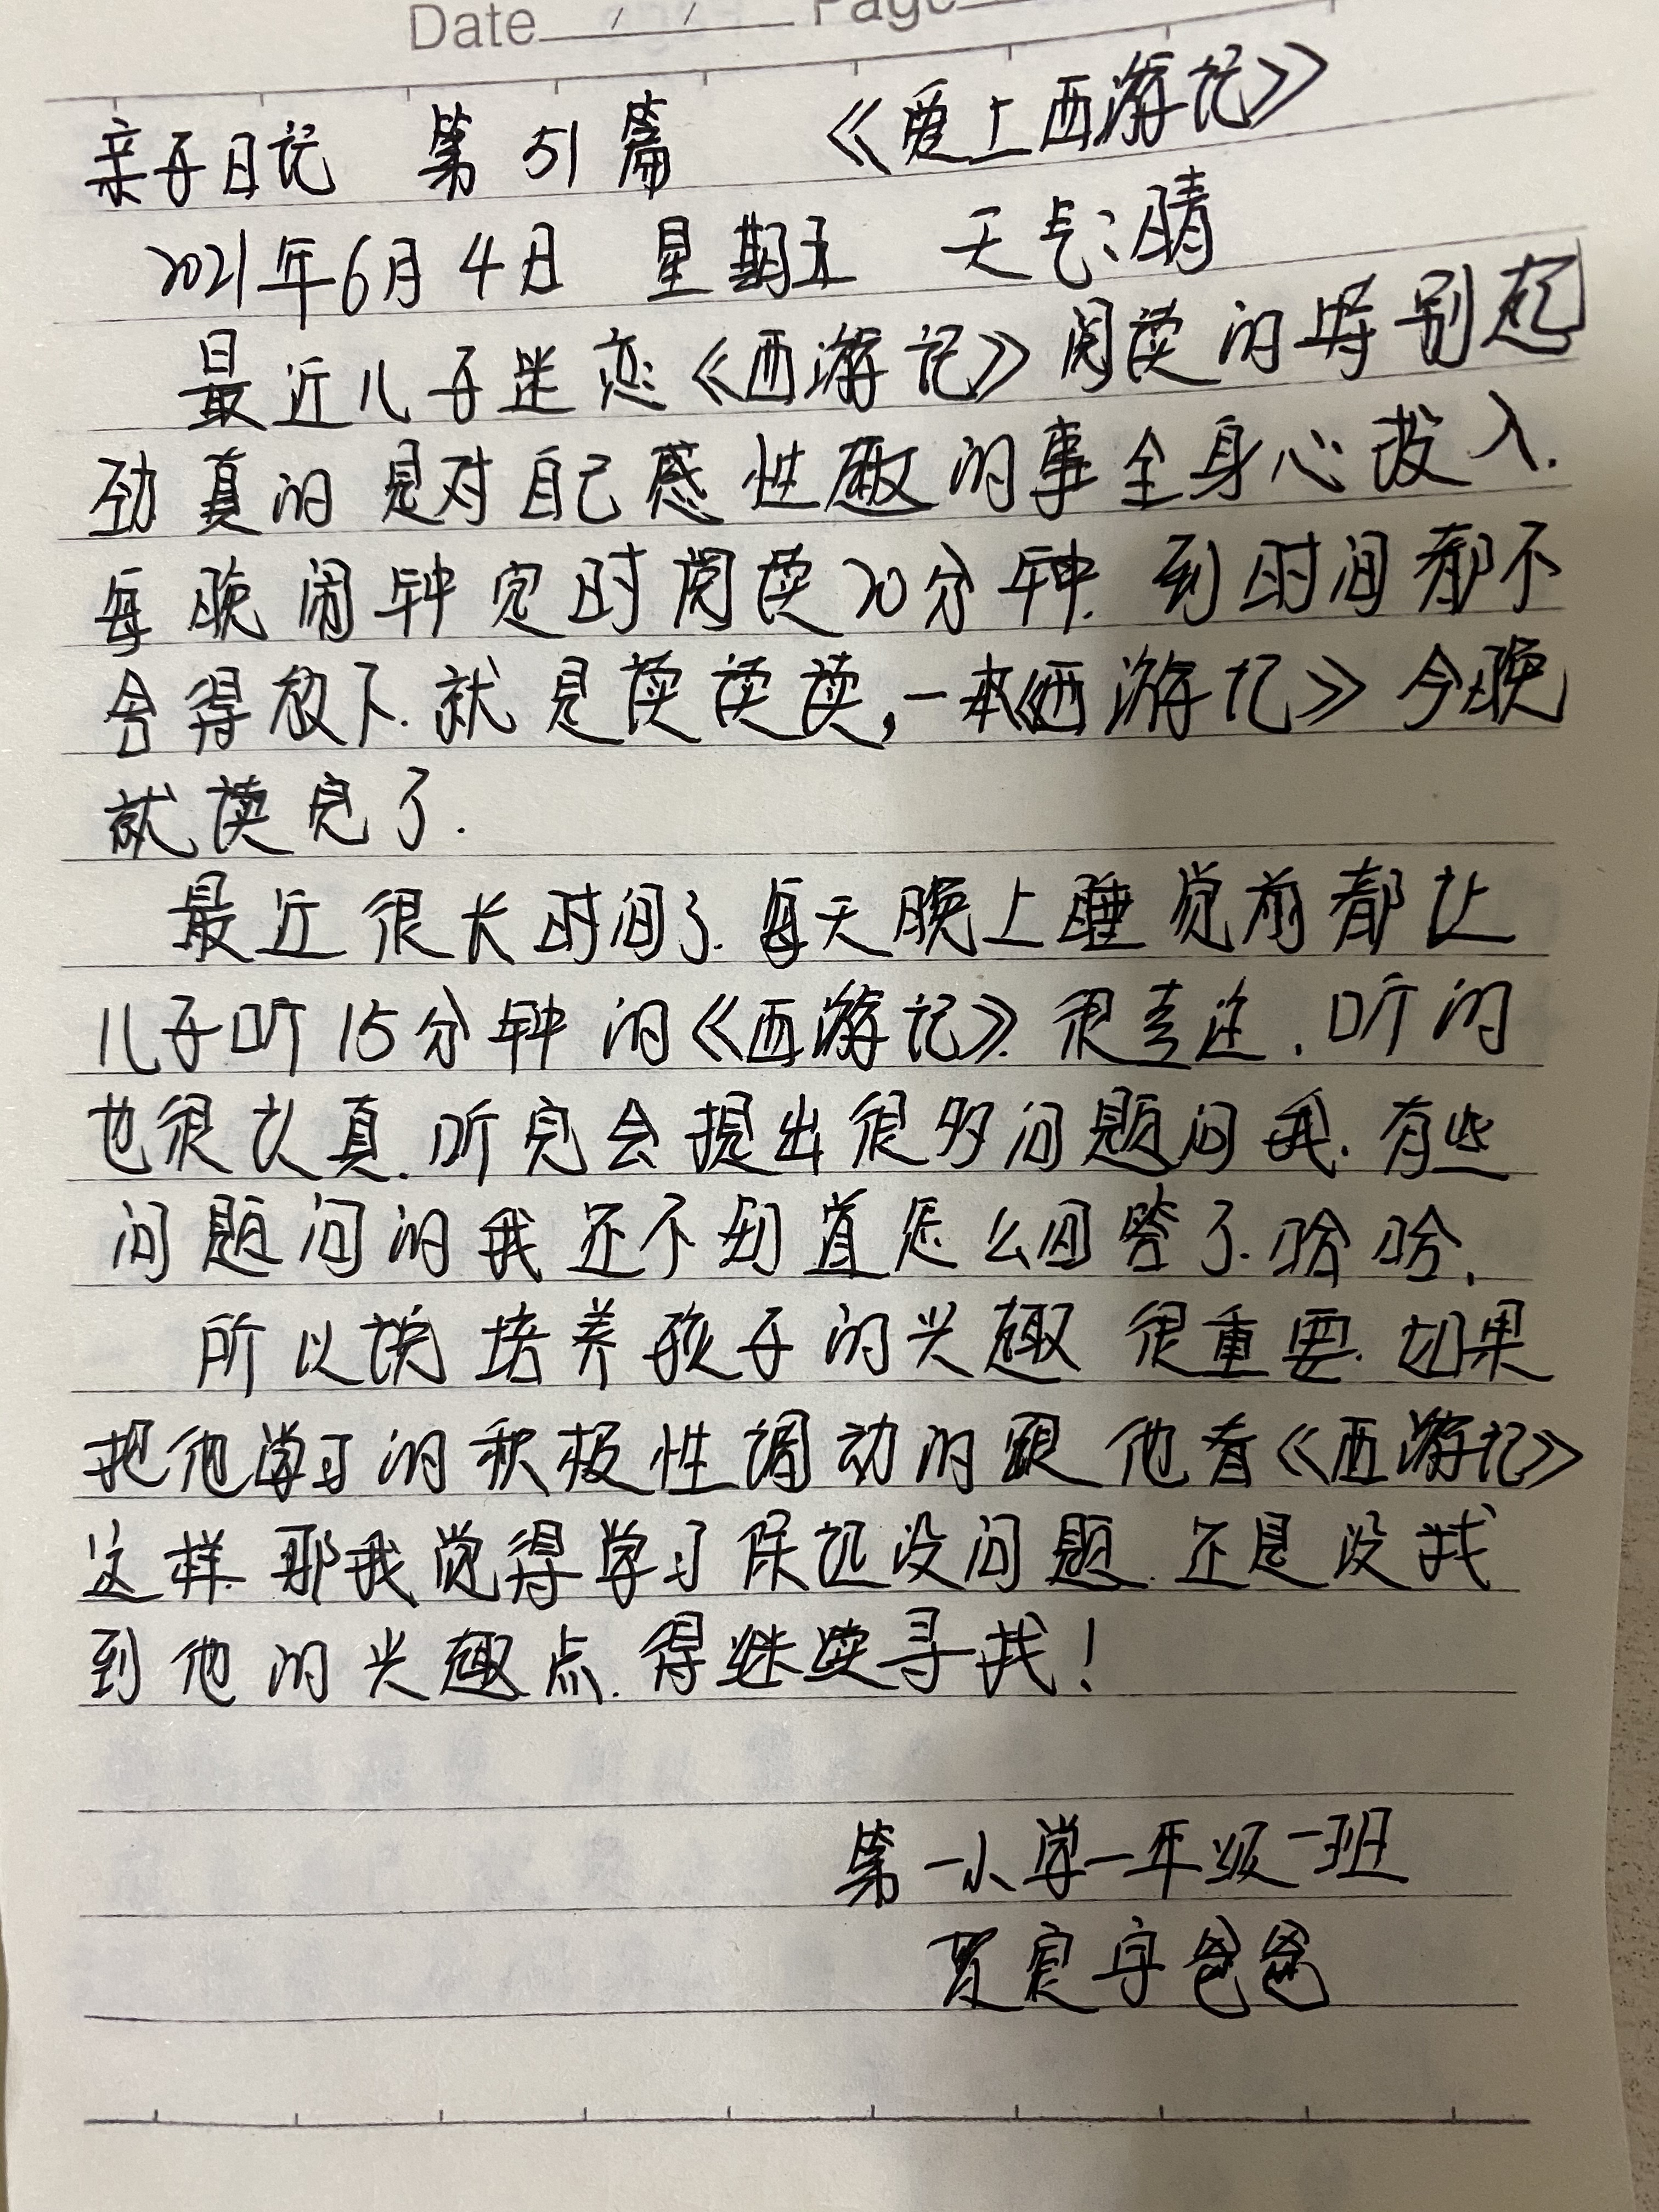 Date / / Page
亲子日记 第51篇 《爱上西游记》
2021年6月4日 星期五 天气:晴
最近儿子迷恋《西游记》阅读的特别起
劲真的是对自己感性趣的事全身心投入.
每晚闹钟定时阅读20分钟.到时间都不
舍得放下.就是读读读,一本《西游记》今晚
就读完了.
最近很长时间了.每天晚上睡觉前都让
儿子听15分钟的《西游记》.很着迷.听的
也很认真.听完会提出很多问题问我.有些
问题问的我还不知道怎么回答了.哈哈.
所以说培养孩子的兴趣很重要.如果
把他学习的积极性调动的跟他看《西游记》
这样.那我觉得学习保证没问题.还是没找
到他的兴趣点.得继续寻找!
第一小学一年级一班
夏定宇爸爸